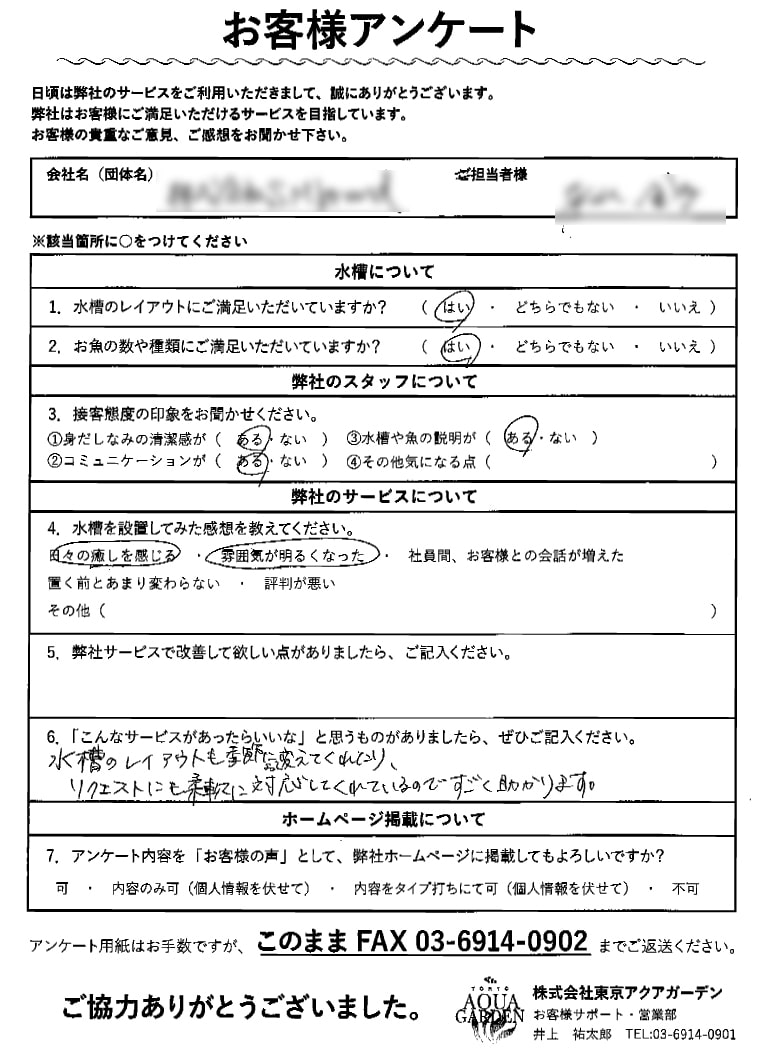 お客様アンケート
日頃は弊社のサービスをご利用いただきまして、誠にありがとうございます。
弊社はお客様にご満足いただけるサービスを目指しています。
お客様の貴重なご意見、ご感想をお聞かせ下さい。
会社名（団体名） ご担当者様
※該当箇所に○をつけてください
水槽について
1．水槽のレイアウトにご満足いただいていますか？ （ はい ・ どちらでもない ・ いいえ ）
2．お魚の数や種類にご満足いただいていますか？ （ はい ・ どちらでもない ・ いいえ ）
弊社のスタッフについて
3．接客態度の印象をお聞かせください。
①身だしなみの清潔感が（ ある・ない ） ③水槽や魚の説明が（ ある・ない ）
②コミュニケーションが（ ある・ない ） ④その他気になる点（ ）
弊社のサービスについて
4．水槽を設置してみた感想を教えてください。
日々の癒しを感じる ・ 雰囲気が明るくなった ・ 社員間、お客様との会話が増えた
置く前とあまり変わらない ・ 評判が悪い
その他（ ）
5．弊社サービスで改善して欲しい点がありましたら、ご記入ください。
6．「こんなサービスがあったらいいな」と思うものがありましたら、ぜひご記入ください。
水槽のレイアウトも季節に変えてくれたり、
リクエストにも柔軟に対応してくれているのですごく助かります。
ホームページ掲載について
7．アンケート内容を「お客様の声」として、弊社ホームページに掲載してもよろしいですか？
可 ・ 内容のみ可（個人情報を伏せて） ・ 内容をタイプ打ちにて可（個人情報を伏せて） ・ 不可
アンケート用紙はお手数ですが、このまま FAX 03-6914-0902 までご返送ください。
ご協力ありがとうございました。
TOKYO
AQUA
GARDEN
株式会社東京アクアガーデン
お客様サポート・営業部
井上 祐太郎 TEL:03-6914-0901